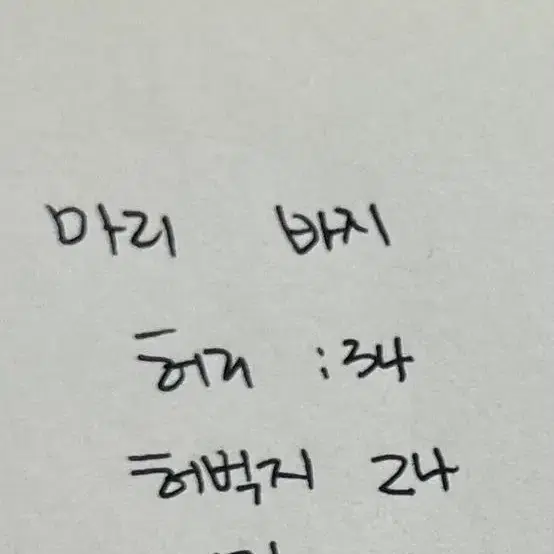 마리 바지
허리 : 34
허벅지 24